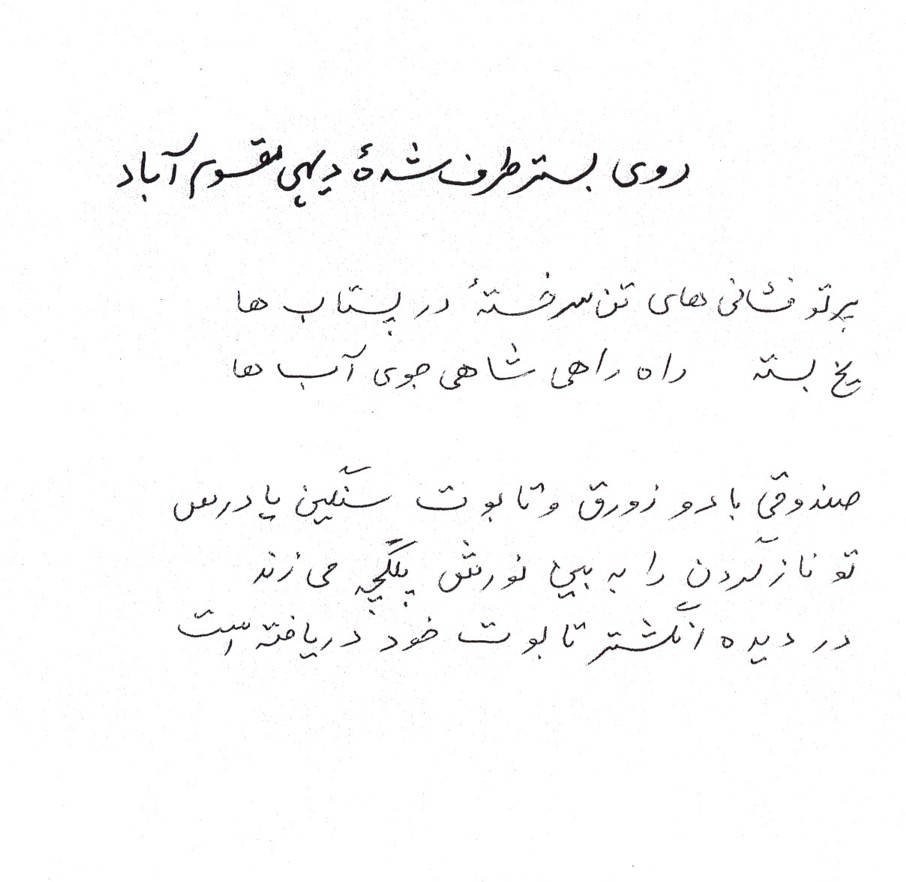 روی بستر طرف شدهٔ دیهی مقسوم آباد
پرتو فشانی های تن سرختهٔ در پستاب ها
یخ بسته راه راهی شاهی جوی آب ها
صندوقی با دو زورق و تابوت سنگین پا درس
تو ناز گردن را به پی نورش پلگچه می زند
در دیده انگشتر تابوت خود دریافته است